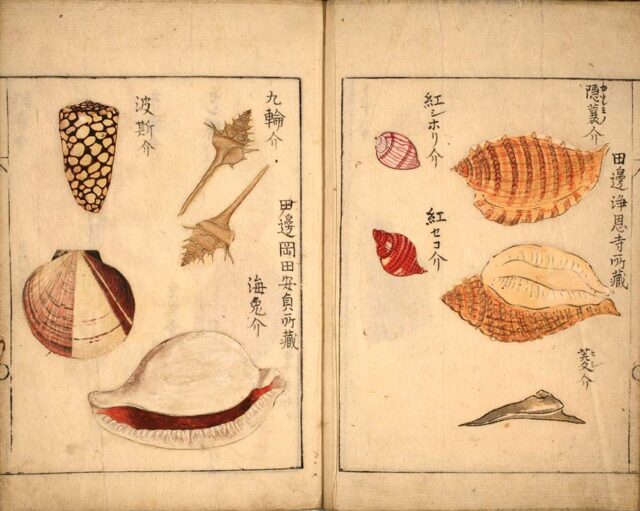 隠蓑介
カクレミノ
田邊浄恩寺所藏
紅シホリ介
紅セコ介
ヒシ
介
九輪介
田邊岡田安貞所藏
海兔介
波斯介